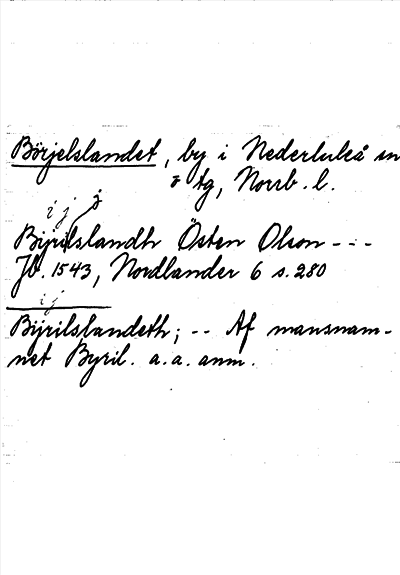 Börjelslandet, by i Nederluleå sn
o tg, Norrb. l.
i j j
Bijrilslandh Östen Olson - - -
Jb. 1543, Nordlander 6 s. 280
i j
Bijrilslandeth; -- Af mansnam-
net Byril. a. a. anm.